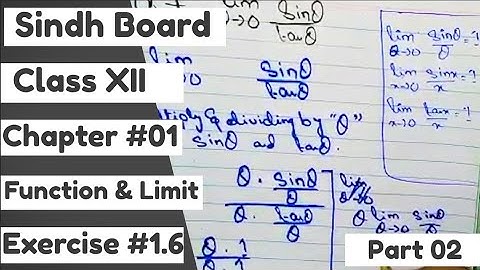 Sindh Board
Class XII
Chapter #01
Function & Limit
Exercise #1.6
Part 02
lim θ→0 sinθ/tanθ
sinθ/tanθ
dividing by "θ"
sinθ and tanθ
θ · sinθ/θ
θ · tanθ/θ
θ · 1
θ · 1
θ lim θ→0 sinθ/θ
lim θ→0 sinθ/θ = ?
lim x→0 sinx/x = ?
lim x→0 tanx/x = ?